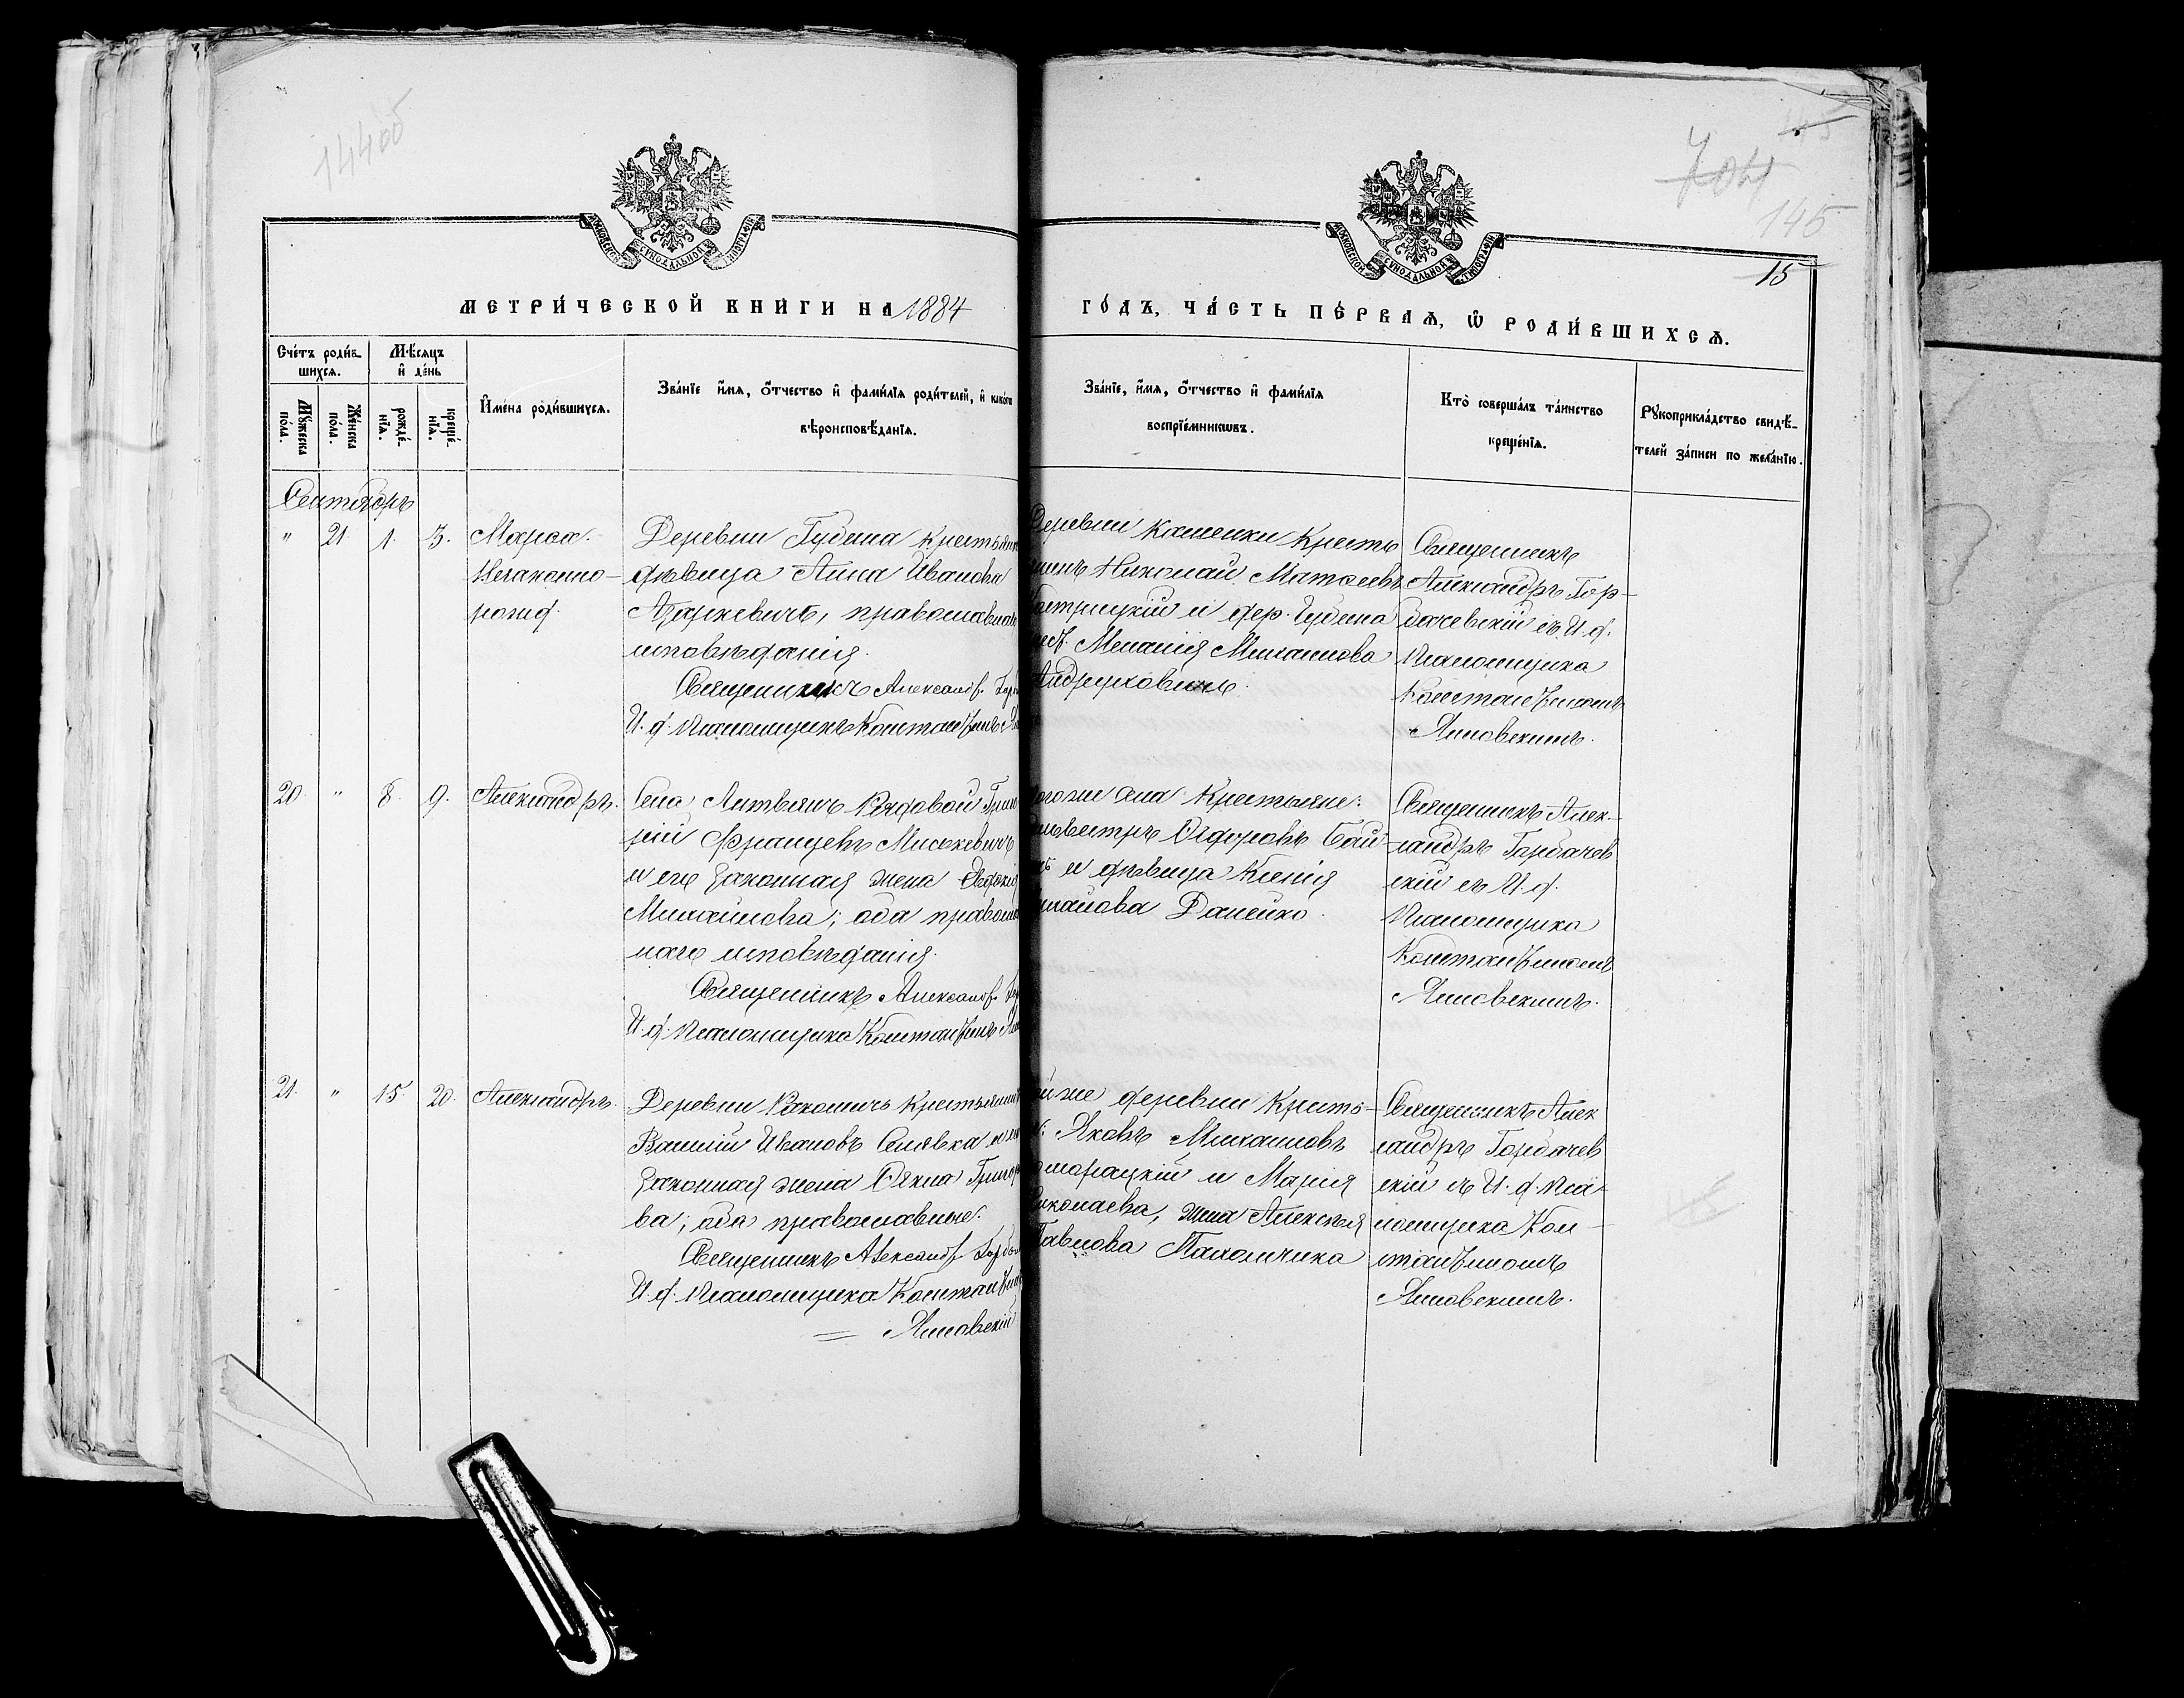 14406
704
145
15
МОСКОВСКОЙ СѴНОДАЛЬНОЙ ТИПОГРАФІИ
МОСКОВСКОЙ СѴНОДАЛЬНОЙ ТИПОГРАФІИ
МЕТРИ́ЧЕСКОЙ КНИ́ГИ НА 1884
ГО́ДЪ, ЧА́СТЬ ПЕ́РВАѦ, Ѽ РОДИ́ВШИХСѦ.
Сче́тъ роди́в-
шихсѧ.
Мꙋжеска
по́ла.
Же́нска
по́ла.
Мѣ́сѧцъ
и҆ де́нь
рожде́-
нїѧ.
креще́-
нїѧ.
И҆мена̀ роди́вшихсѧ.
Зва́нїе и҆́мѧ, ѻ҆́тчество и҆ фами́лїѧ роди́телей, и҆ како́гѡ
вѣроисповѣ́данїѧ.
Зва́нїе, и҆́мѧ, ѻ҆́тчество и҆ фами́лїѧ
воспрїе́мникѡвъ.
Кто̀ соверша́лъ та́инство
креще́нїѧ.
Рꙋкоприкла́дство свидѣ́-
телей за́писи по жела́нїю.
Сентябрь
" 21. 1. 3. Марѳа.
Незаконно-
рожд.
Деревни Гудина крестьян
дѣвица Анна Иванова
Азаркевичъ, православна
исповѣданія.
Священникъ Александ. Гор
И. д. Псаломщикъ Константинъ Ян
Деревни Кашенки Кресть
нинъ Николай Матѳеевъ
и дер. Гудина
Меланія Михаилова
Андруковичъ.
Священникъ
Александръ Гор-
бачевскій съ И. д.
Псаломщика
Константиномъ
Яновскимъ.
20. " 8. 9. Александръ.
Села Литвянъ Рядовой Григо
рій Францевъ Миськевичъ
и его законная жена Евдокія
Михайлова; оба правосла
наго исповѣданія.
Священникъ Александ. Гор
И. д. Псаломщика Константинъ Ян
тогоже села Крестьяне:
Сильвестръ Ѳедоровъ Бай
и дѣвица Ксенія
Данейко.
Священникъ Алек-
сандръ Горбачев
скій съ И. д.
Псаломщика
Константиномъ
Яновскимъ.
21. " 15. 20. Александръ.
Деревни крестьянинъ
Василій Ивановъ Слявка и
законная жена Ѳекла Григорь
ва; оба православные.
Священникъ Александ. Горба
И. д. Псаломщика Константин
Яновскій
тойже деревни Кресть-
Яковъ Михаиловъ
и Марія
Николаева, жена Алексѣя
Павлова
Священникъ Алек
сандръ Горбачев
скій съ И. д. Пса-
ломщика Кон-
стантиномъ
Яновскимъ.